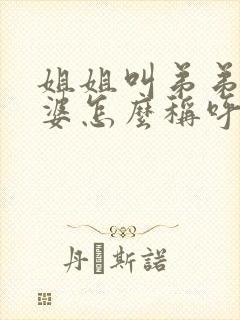 姐姐叫弟弟
婆怎麼稱呼
丹斯諾